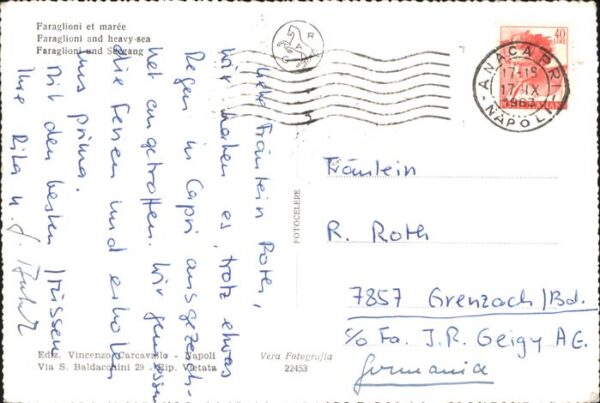 Faraglioni et marée
Faraglioni and heavy-sea
Faraglioni und Seegang
Liebe Fräulein Roth,
wir haben es, trotz etwas
Regen in Capri ausgezeich-
net angetroffen. Wir geniessen
die Ferien und erholen
uns prima.
Mit den besten Grüssen
Ihre Rita u. J.
FOTOCELERE
40
ANACAPRI
17-18
17.IX
196
NAPOLI
Fräulein
R. Roth
7857 Grenzach/Bd.
c/o Fa. J.R. Geigy AG.
Germania
Ediz. Vincenzo Carcavallo - Napoli
Via S. Baldacchini 29 - Rip. Vietata
Vera Fotografia
22453